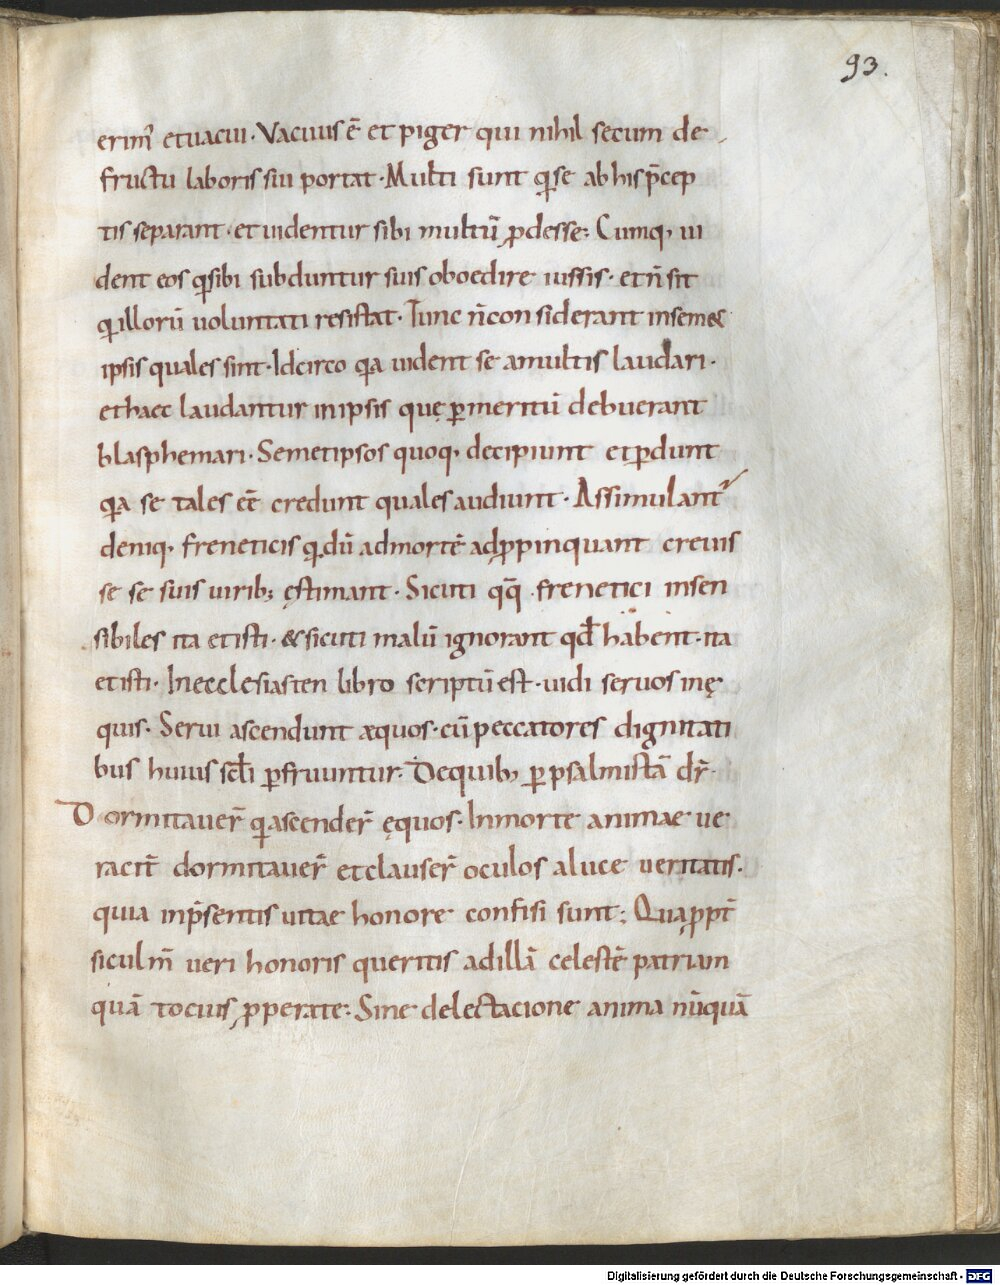 93.
erim᷒ et uacui· Vacuus ē et piger qui nihil secum de
fructu laboris sui portat· Multi sunt qi se ab his p̄cep
tis separant· et uidentur sibi multū ꝓdesse: Cumq, ui
dent eos qi sibi subduntur suis oboedire iussis· et n̄ sit
qi illorū uoluntati resistat· Tunc n̄ considerant in sem&
ipsis quales sint· Idcirco qa uident se a multis laudari·
et haec laudantur in ipsis quę ꝑ meritū debuerant
blasphemari· Semetipsos quoq, decipiunt et ꝑdunt
qa se tales eē credunt quales audiunt· Assimulant᷒
deniq, freneticis qi dū ad mortē adꝓpinquant creuis
se se suis uirib; ęstimant· Sicuti qq̄ frenetici insen
sibiles ita et isti· & sicuti malū ignorant qđ habent· ita
et isti· In ecclesiasten libro scriptū est· uidi seruos in ę
quis· Serui ascendunt æquos· cū peccatores dignitati
bus huius sc̄li ꝑfruuntur· De quib, ꝑ psalmistā dr̄·
Dormitauer̄ qi ascender̄ ęquos· In morte animae ue
racit̄ dormitauer̄ et clauser̄ oculos a luce ueritatis·
quia in p̄sentis uitae honore confisi sunt: Quaꝓpt̄
si culm̄ ueri honoris queritis ad illā celestē patriam
quā tocius ꝓperate: Sine delectacione anima nūquā
Digitalisierung gefördert durch die Deutsche Forschungsgemeinschaft - DFG